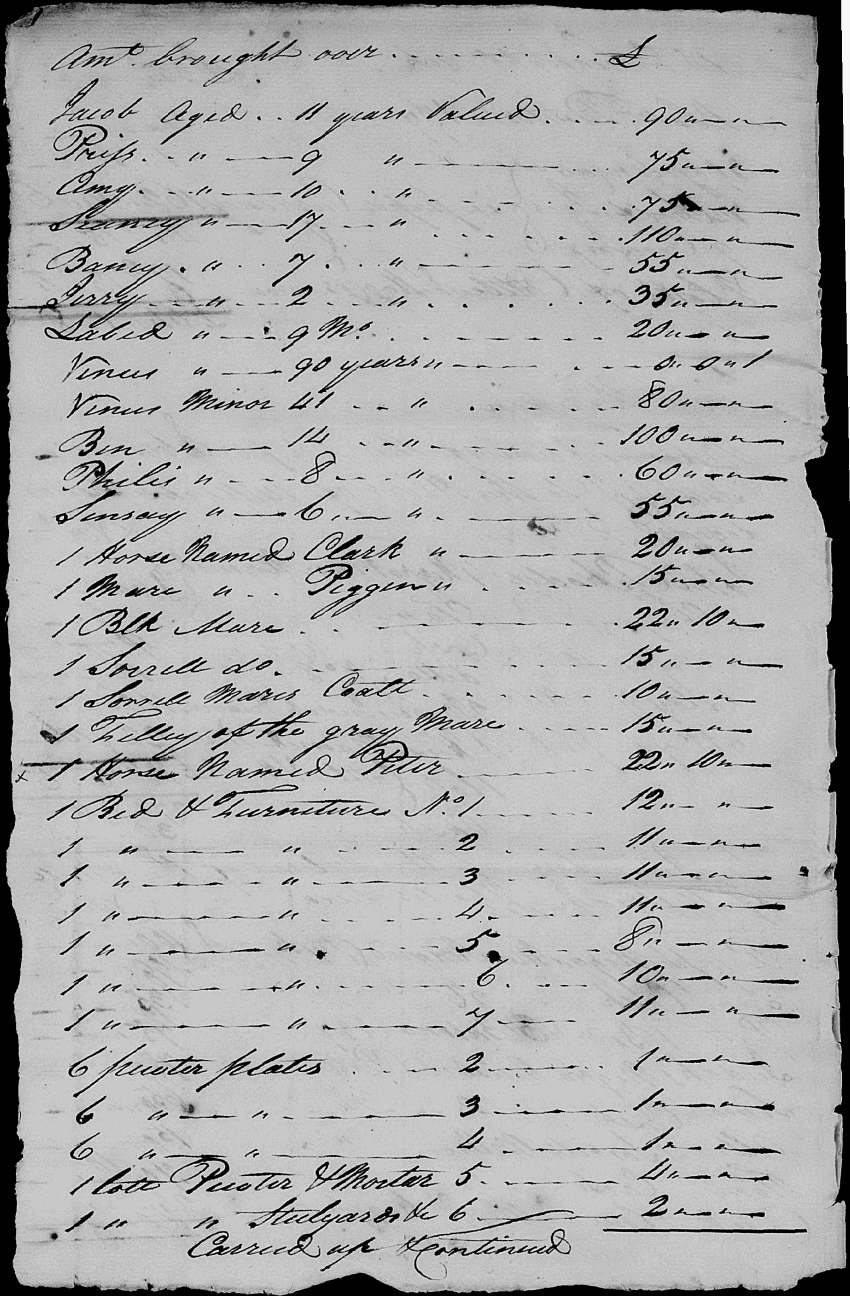 Amt. brought over . . . . . . . . . . £
Jacob Aged . . 11 years Valued . . . . 90 " — " —
Priss . . " — 9 " — 75 " — " —
Amy . . " — 10 . . " . . . . . 75 " — " —
" — 17 . . " . . . . . 110 " — " —
Bancy . " . . 7 . . " — 55 " — " —
Jerry — " — 2 " . . . . . 35 " — " —
" — 9 Mo. . . . . . 20 " — " —
Venus " — 90 years " — 0 " 0 " 1
Venus Minor 41 . . " . . . . 80 " — " —
Ben " — 14 . . " — 100 " — " —
Philis " — 8 — " . . . . . 60 " — " —
Linsay " — 6 . — " — 55 " — " —
1 Horse Named Clark " — 20 " — " —
1 Mare " . . Piggen " . . . . . 15 " — " —
1 Blk Mare . . — 22 " 10 " —
1 Sorrell do. — 15 " — " —
1 Sorrell Mares Coalt . . . . . 10 " — " —
1 Filley of the gray Mare . . . . 15 " — " —
x 1 Horse Named Peter — 22 " 10 " —
1 Bed & Furniture No. 1 — 12 " — " —
1 " — " — 2 . — 11 " — " —
1 " — " — 3 . — 11 " — " —
1 " — " — 4 . — 11 " — " —
1 " — " — 5 . — 8 " — " —
1 " — " — 6 . — 10 " — " —
1 " — " — 7 — 11 " — " —
6 pewter plates . . . . 2 — 1 " — " —
6 " — " — 3 — 1 " — " —
6 " — " — 4 — 1 " — " —
1 lott Pewter & Morter 5 . — 4 " — " —
1 " " Steelyards &c 6 — 2 " — " —
Carried up & Continued